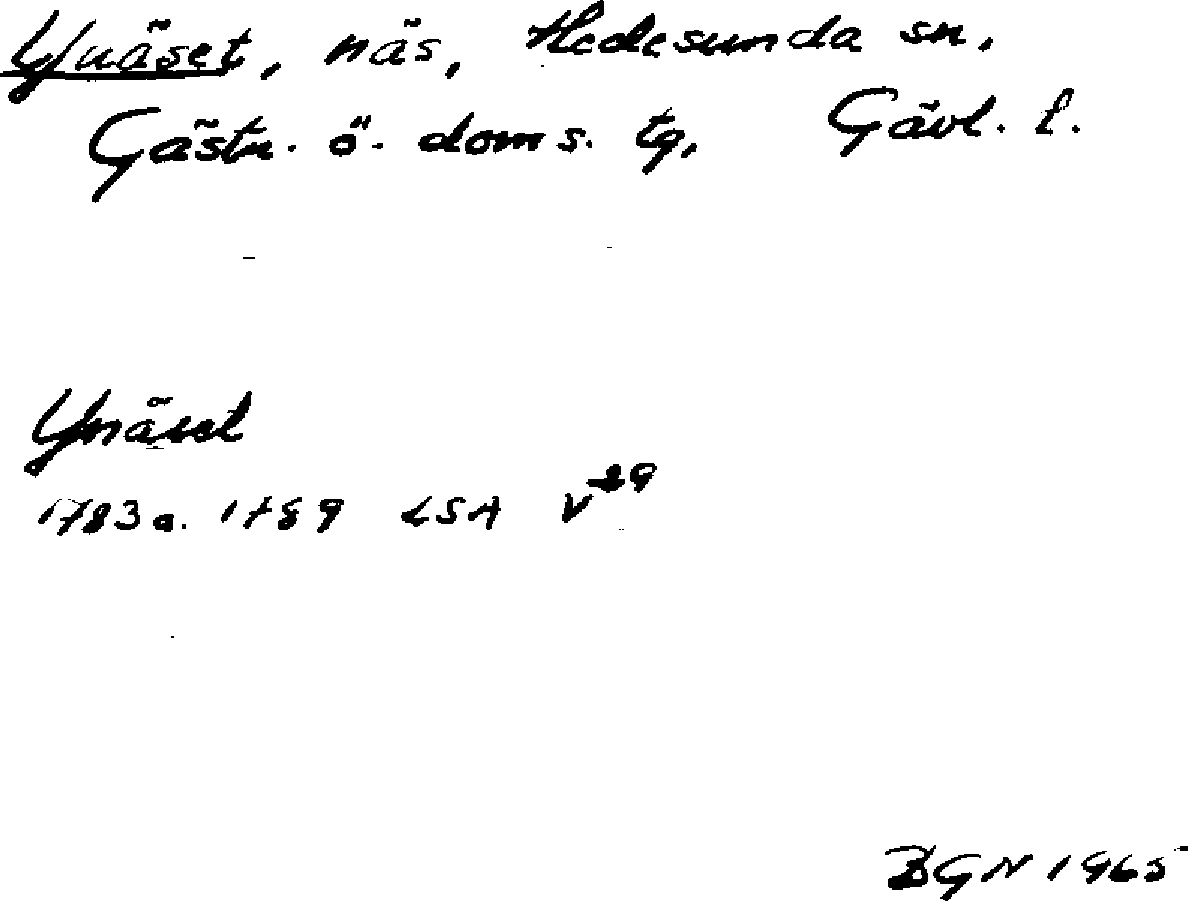 Ynäset, näs, Hedesunda sn,
Gästr. ö. doms. tg, Gävl. l.
Ynäset
1783 a. 1789 LSA V 29
BGN 1965